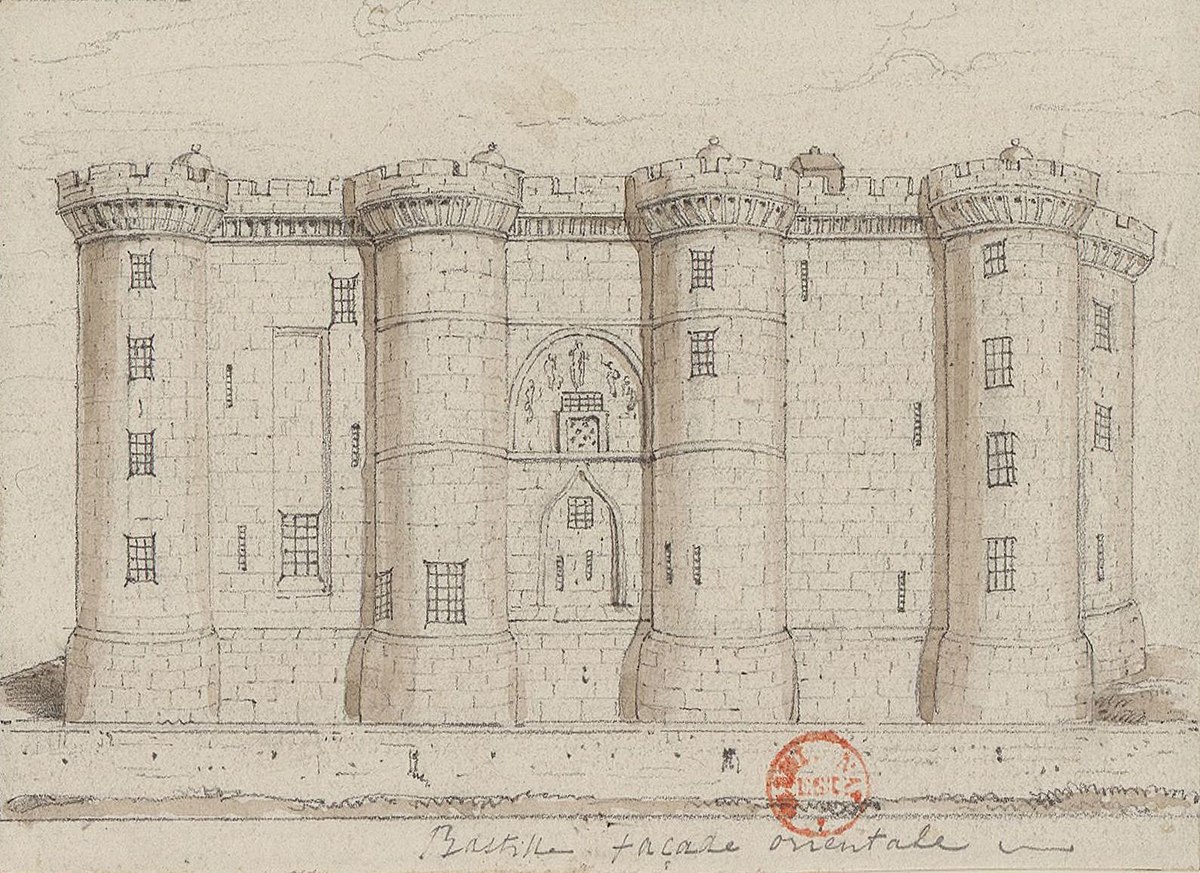 Bastille façade orientale